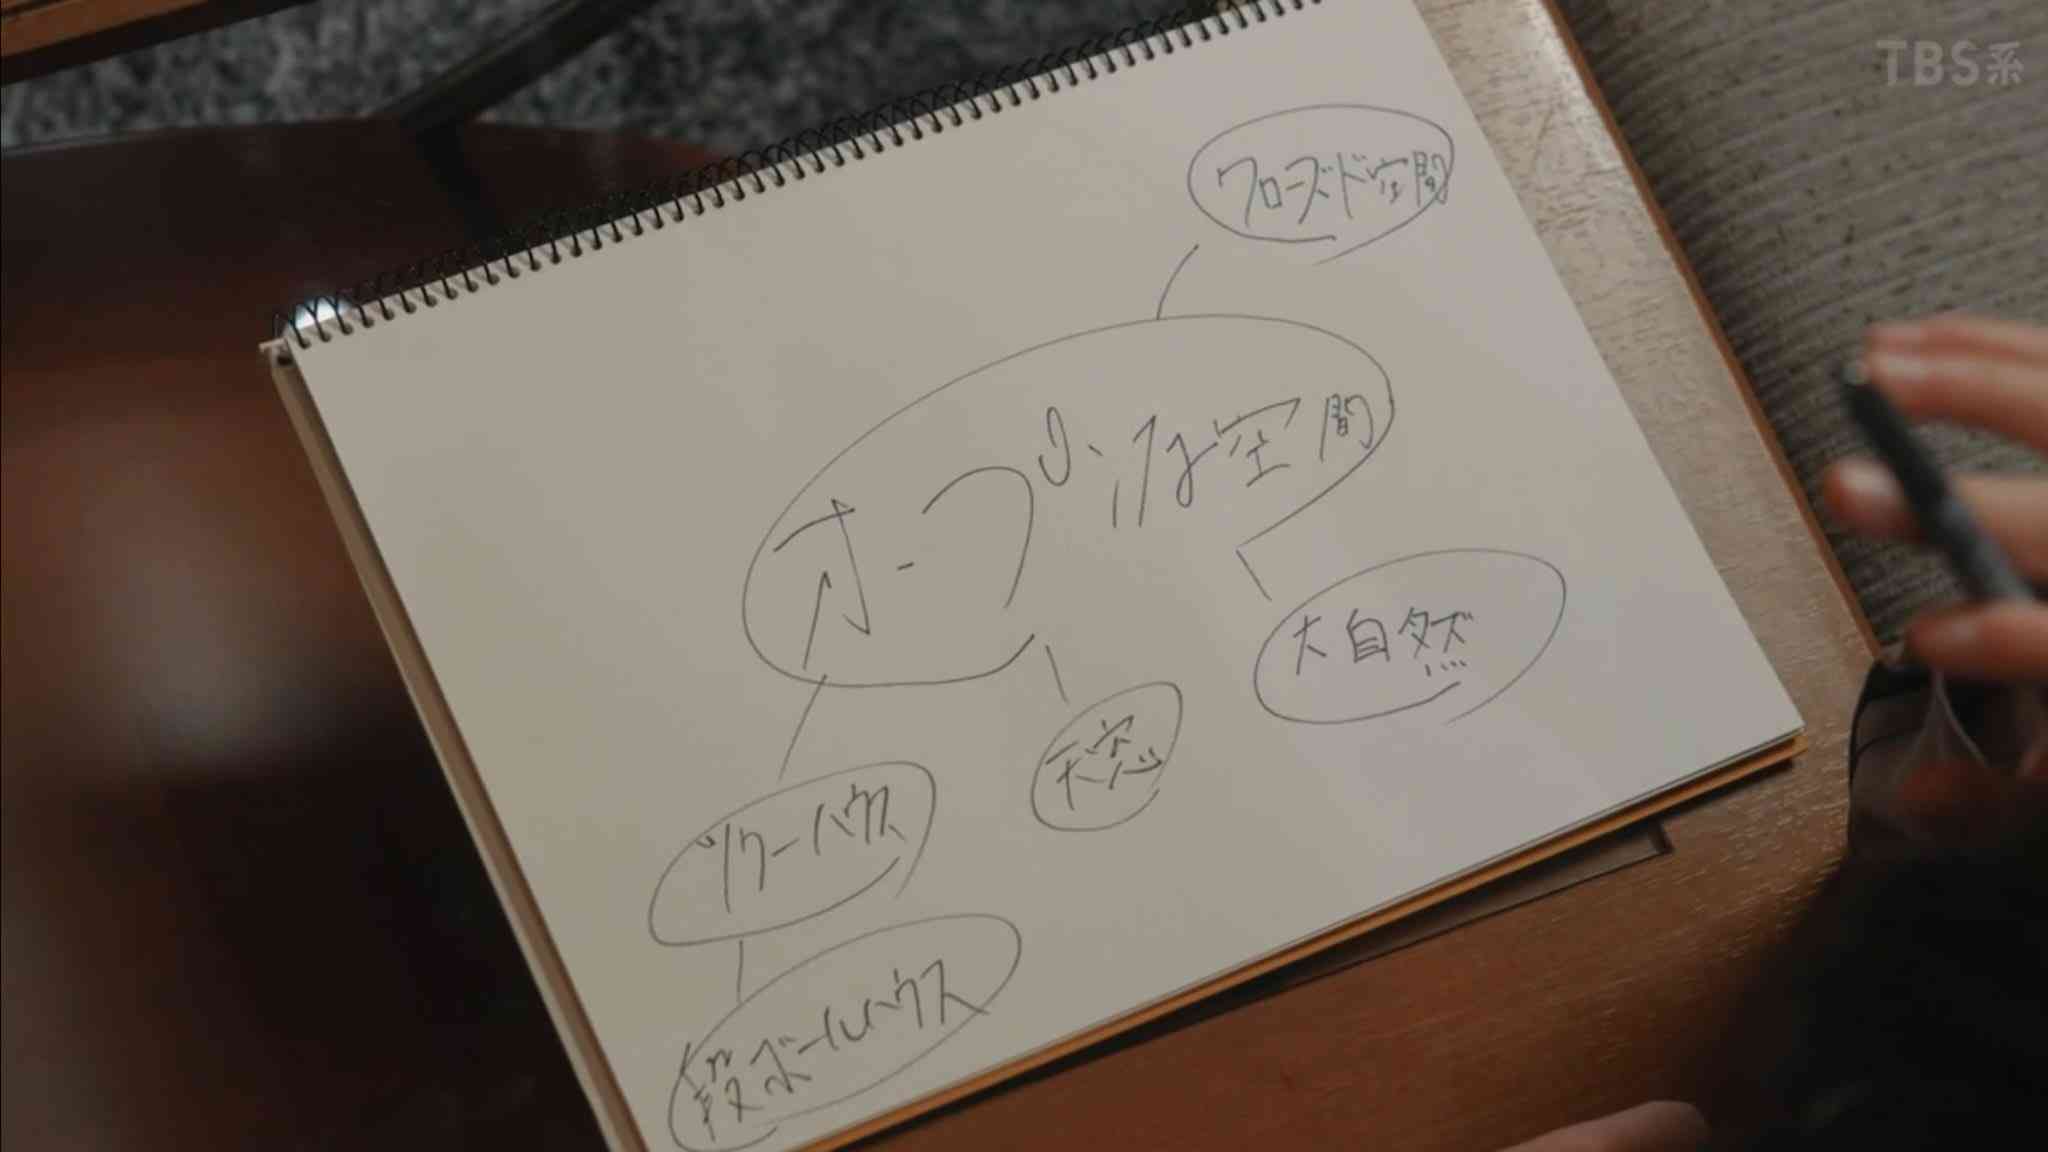 TBS系
クローズド空間
オープンな空間
大自然
天窓
ツリーハウス
段ボールハウス